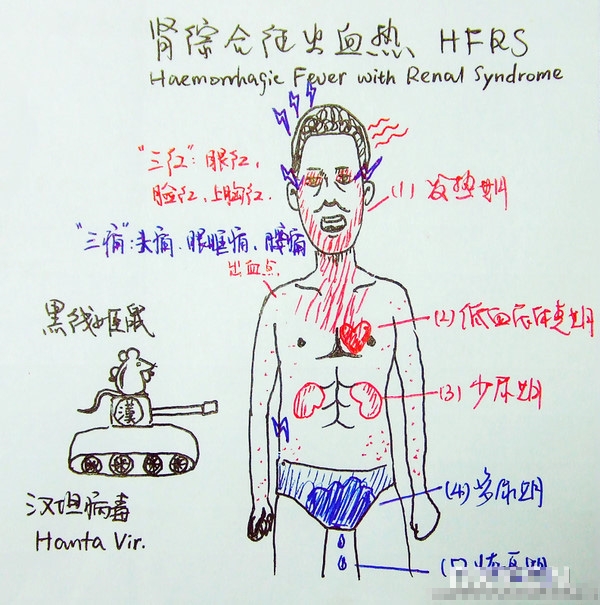 肾综合征出血热 HFRS
Haemorrhagic Fever with Renal Syndrome
"三红":眼红,
脸红,上胸红.
(1)发热期
"三痛":头痛.眼眶痛、腰痛
出血点
(2)低血压休克期
(3)少尿期
(4)多尿期
(5)恢复期
黑线姬鼠
漢
汉坦病毒
Hanta Vir.